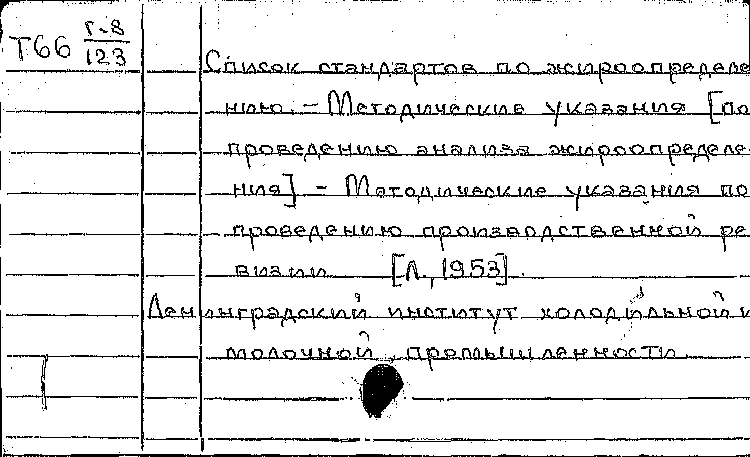 Т66 г-8
123
Список стандартов по жироопределе
нию. - Методические указания [по
проведению анализа жироопределе
ния] - Методические указания по
проведению производственной ре
визии [Л., 1953].
Ленинградский институт холодильной и
молочной промышленности